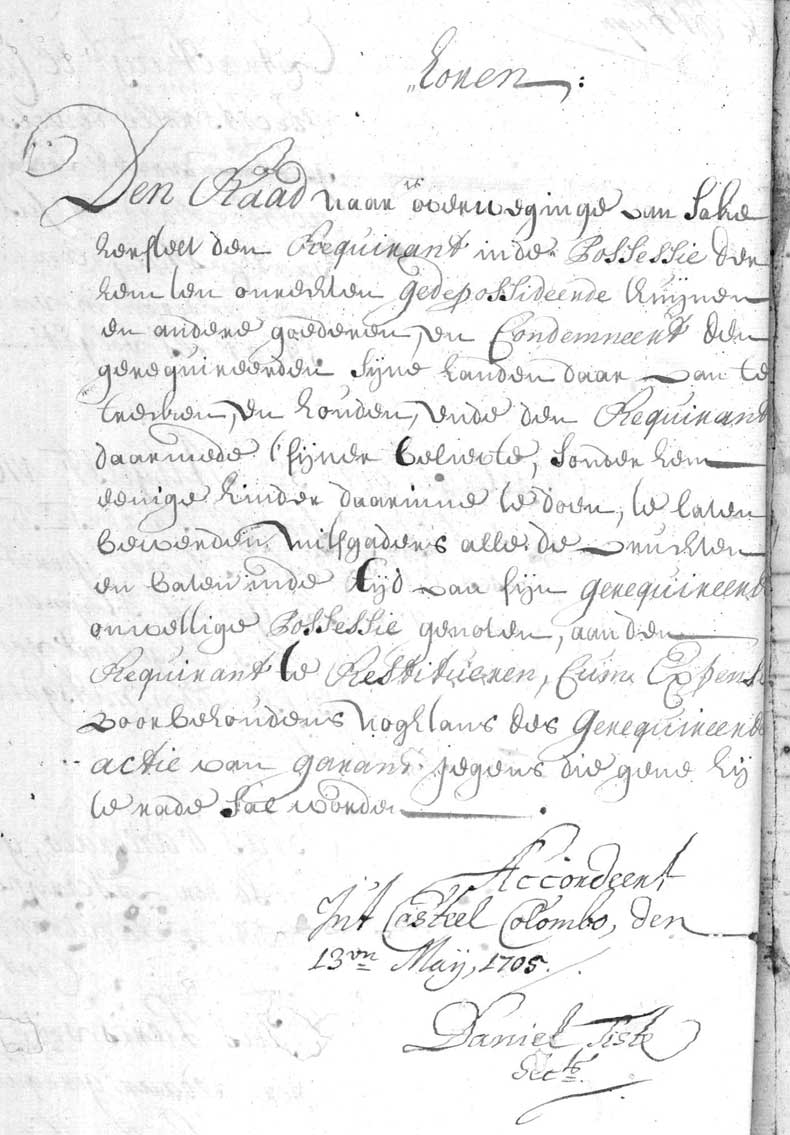 „horen :
Den Raad naar overweginge van sake
herstelt den Requirant inde Possessie der
hem ten onrechten gedepossideerde thuijnen
en andere goederen, en Condemneert den
gerequireerden sijne handen daar van te
trecken, en houden, ende den Requirant
daarmede t' sijner believte, sonder hem
eenige hinder daarinne te doen, te laten
bewerden, mitsgaders alle de vruchten
en baten inde tijd van sijn gerequireerd
onwettige Possessie genoten, aan den
Requirant te Restitueren, Cum Expensis
voorbehoudens nochtans des Gerequireerd
actie van garant jegens die gene hij
te rade sal worden
Accordeert
Int Casteel Colombo, den
13en Maij, 1705.
Daniel
Sects.